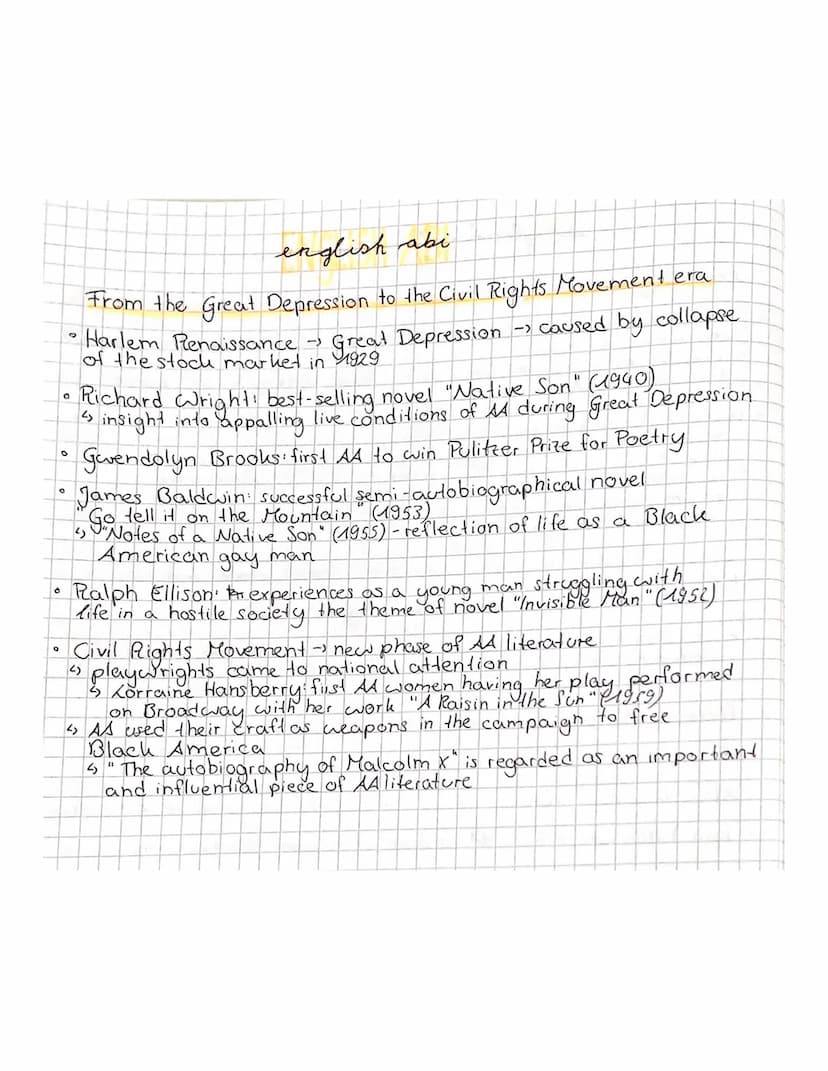 english abi
From the Great Depression to the Civil Rights Movement era
• Harlem Renaissance → Great Depression → caused by collapse
of the stock market in 1929
• Richard Wright: best-selling novel "Native Son" (1940)
↳ insight into appalling live conditions of AA during Great Depression
• Gwendolyn Brooks: first AA to win Pulitzer Prize for Poetry
• James Baldwin: successful semi-autobiographical novel
"Go tell it on the Mountain" (1953)
↳ "Notes of a Native Son" (1955) - reflection of life as a Black
American gay man
• Ralph Ellison: experiences as a young man struggling with
life in a hostile society the theme of novel "Invisible Man" (1952)
• Civil Rights Movement → new phase of AA literature
↳ playwrights came to national attention
↳ Lorraine Hansberry: first AA women having her play performed
on Broadway with her work "A Raisin in the Sun" (1959)
↳ AA used their craft as weapons in the campaign to free
Black America
↳ "The autobiography of Malcolm X" is regarded as an important
and influential piece of AA literature